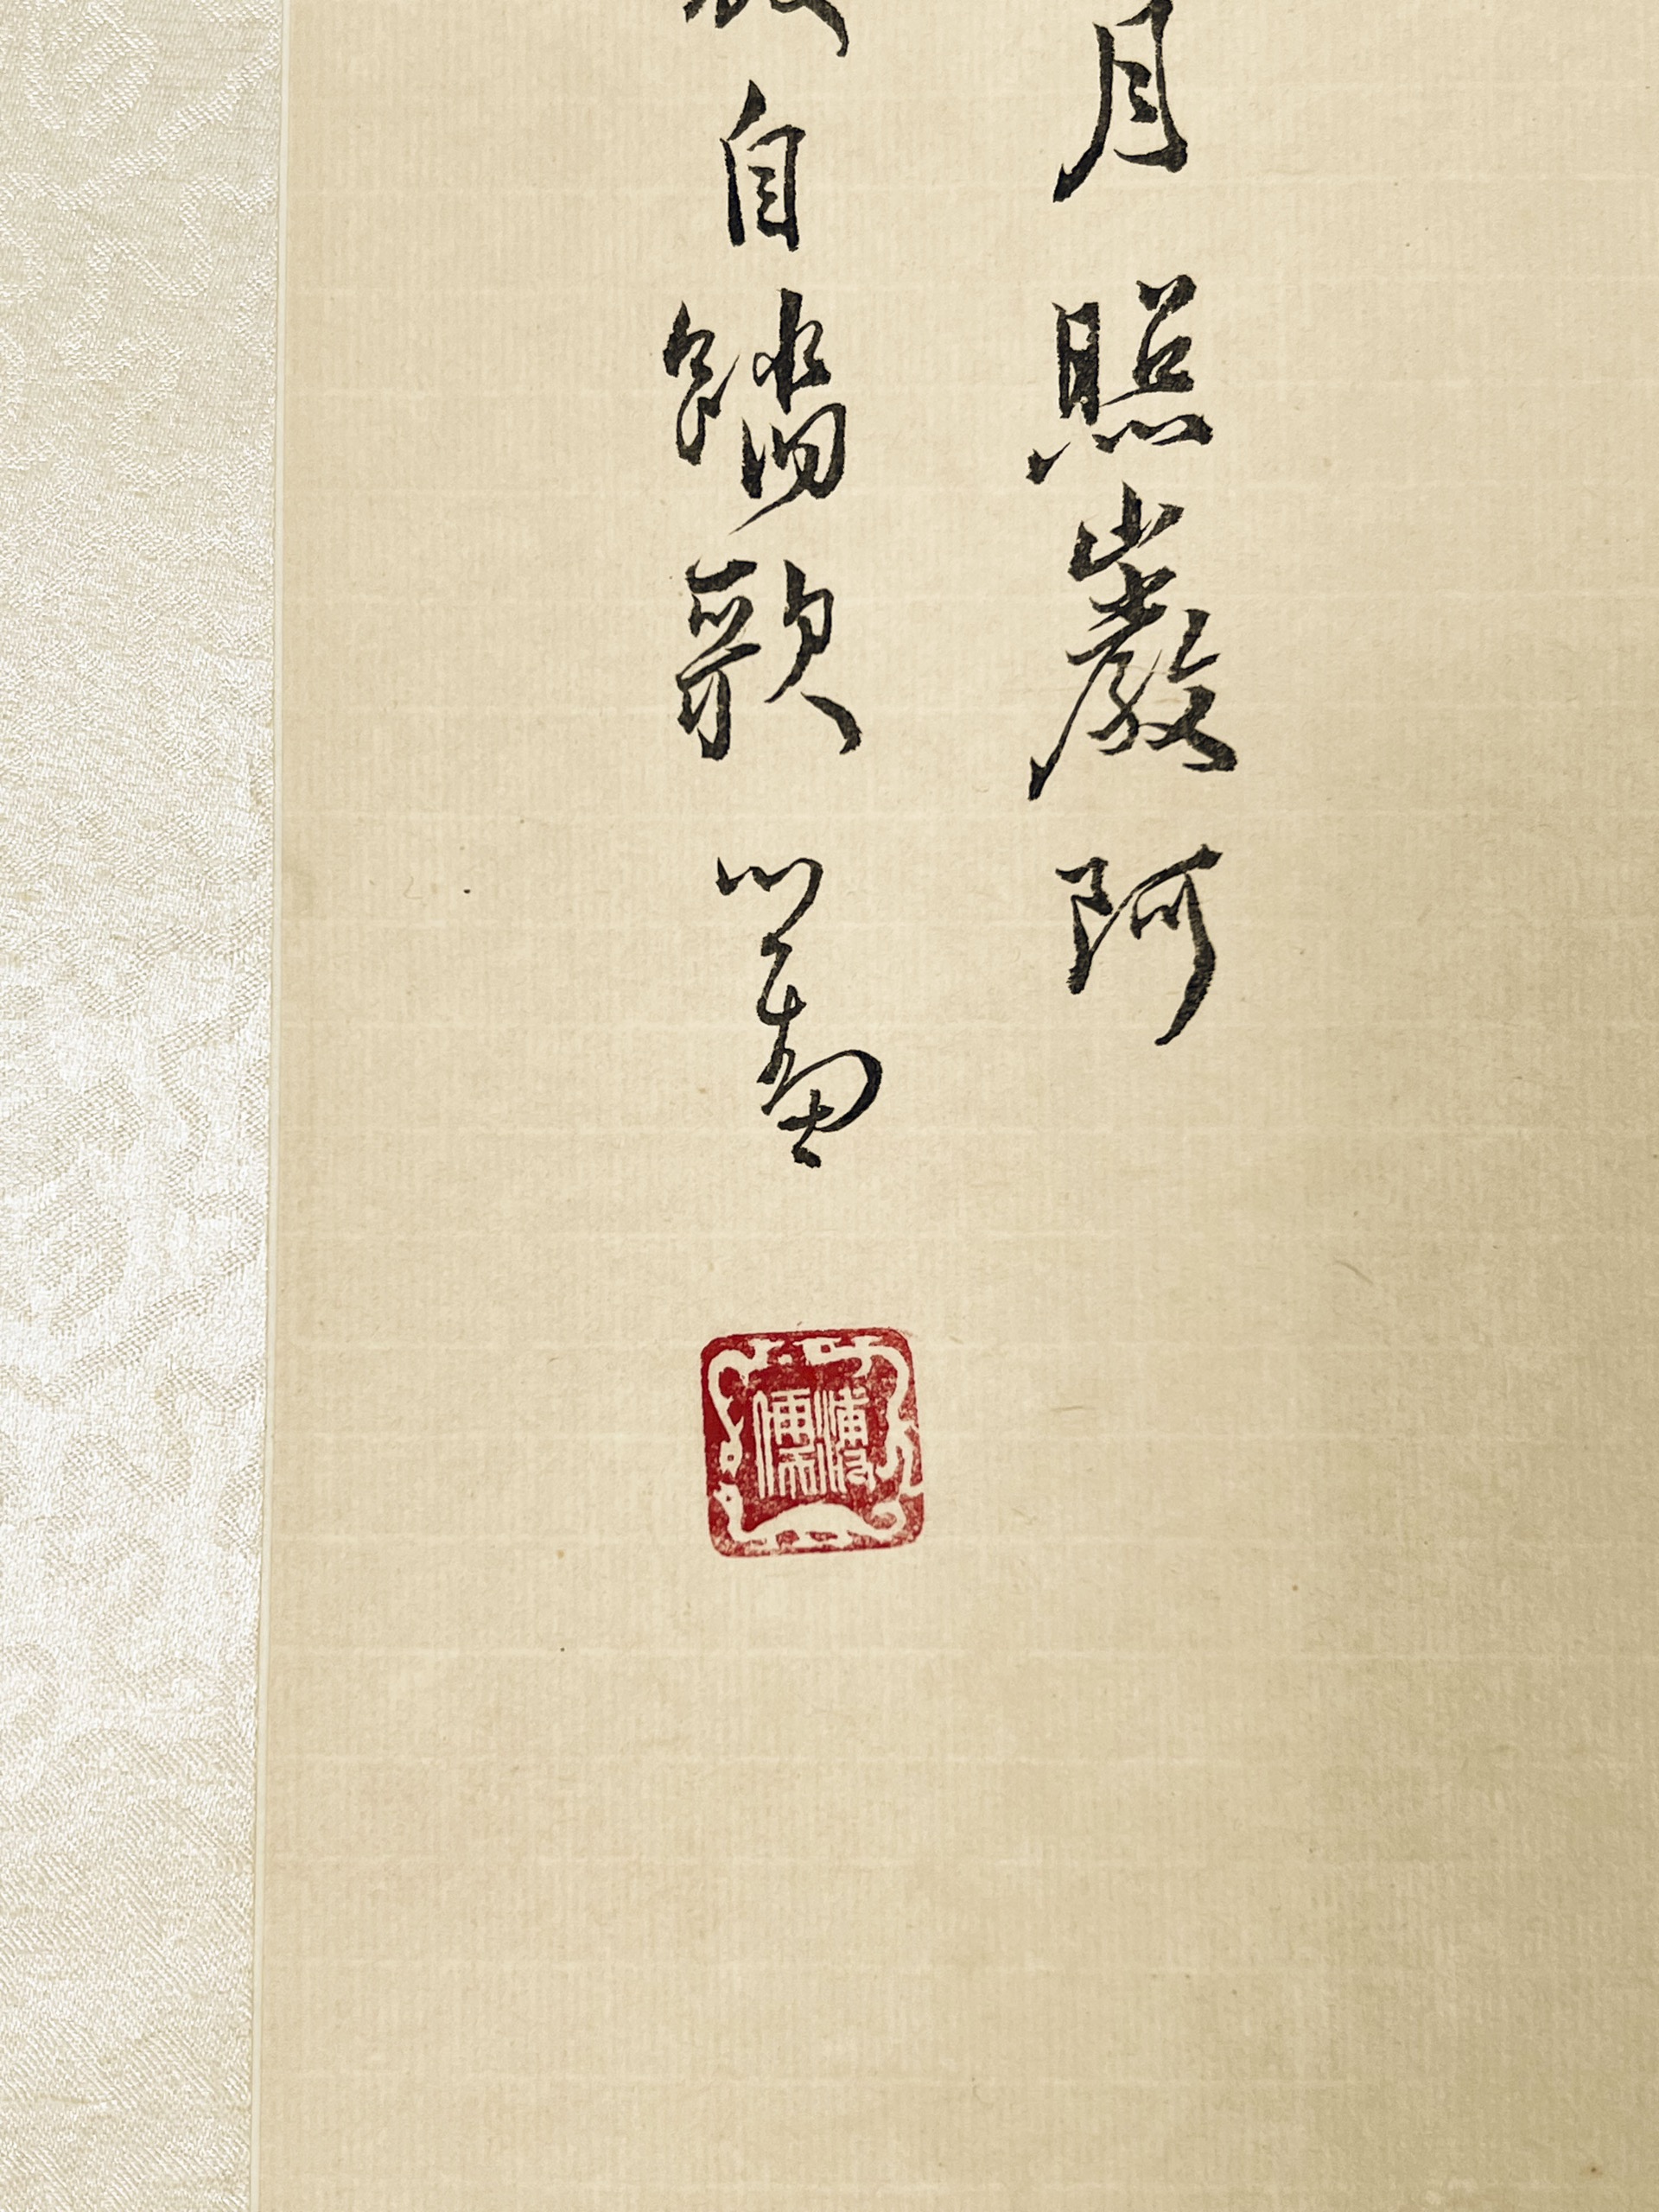 月照巖阿
自踏歌 心畬
溥儒